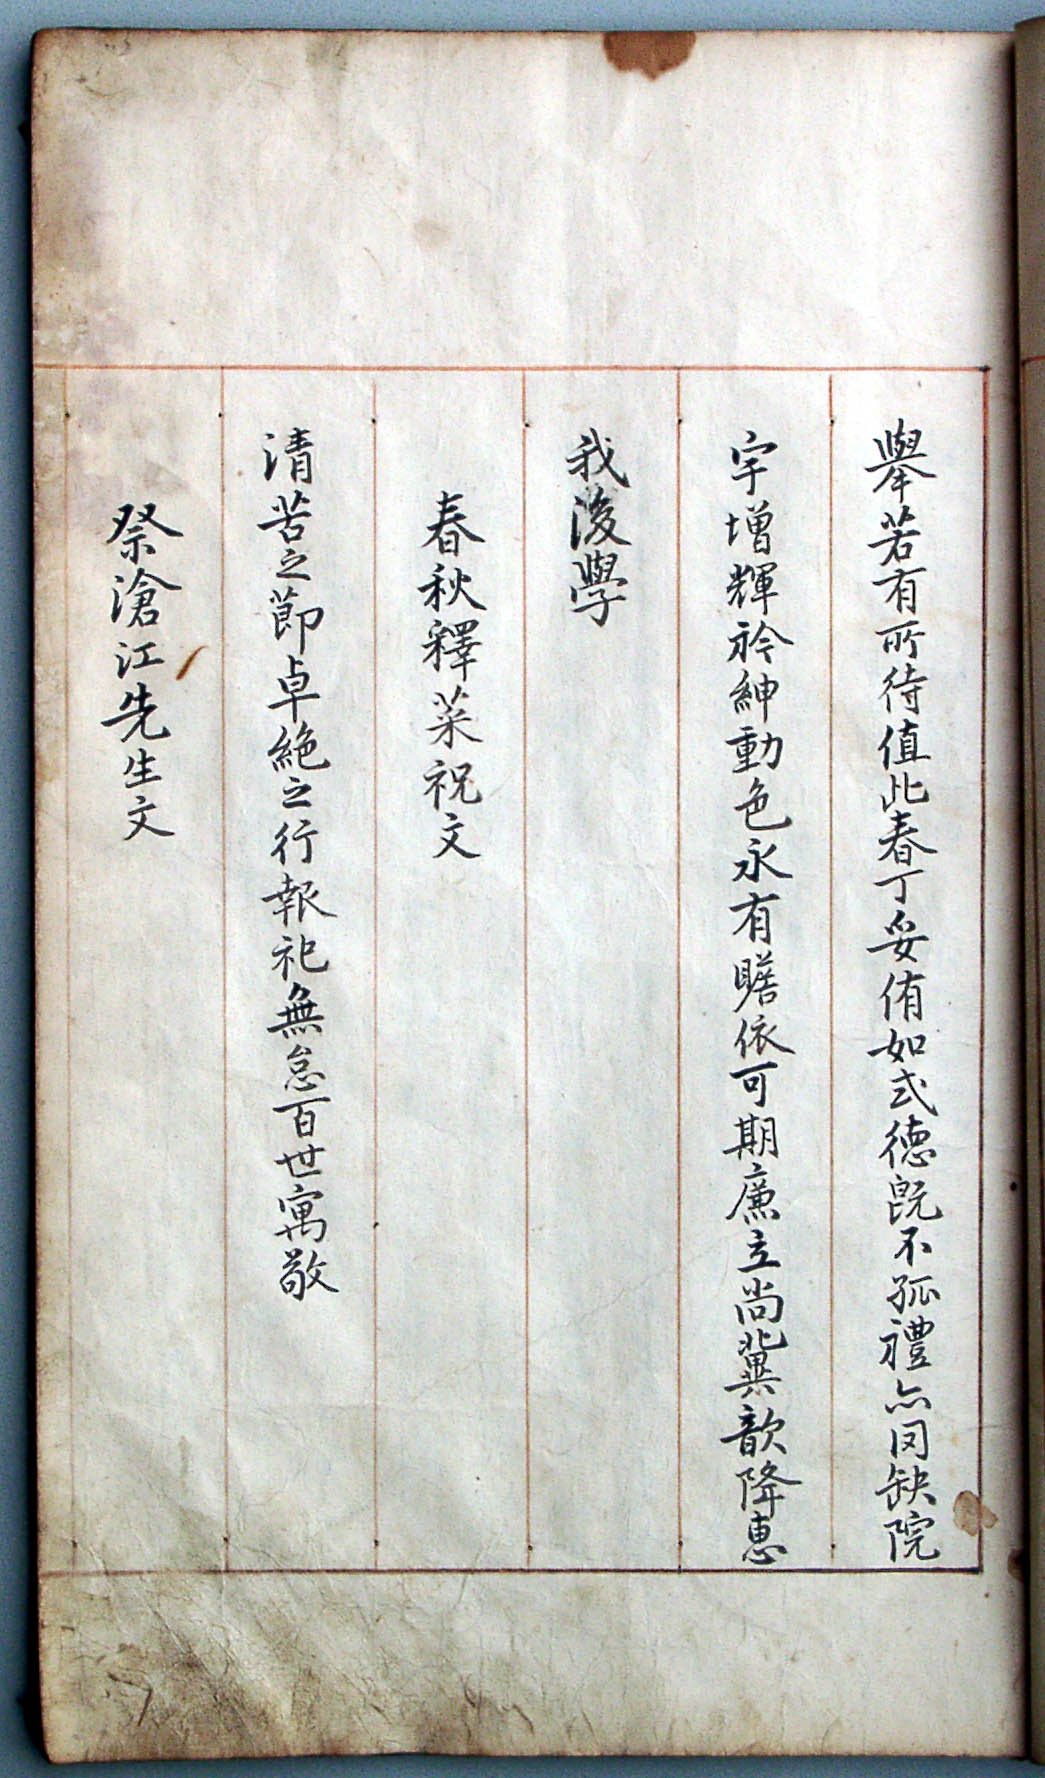 擧若有所待值此春丁妥侑如式德旣不孤禮亦罔缺院
宇增輝衿紳動色永有瞻依可期廉立尚冀歆降惠
我後學
春秋釋菜祝文
清苦之節卓絶之行報祀無怠百世寓敬
祭滄江先生文